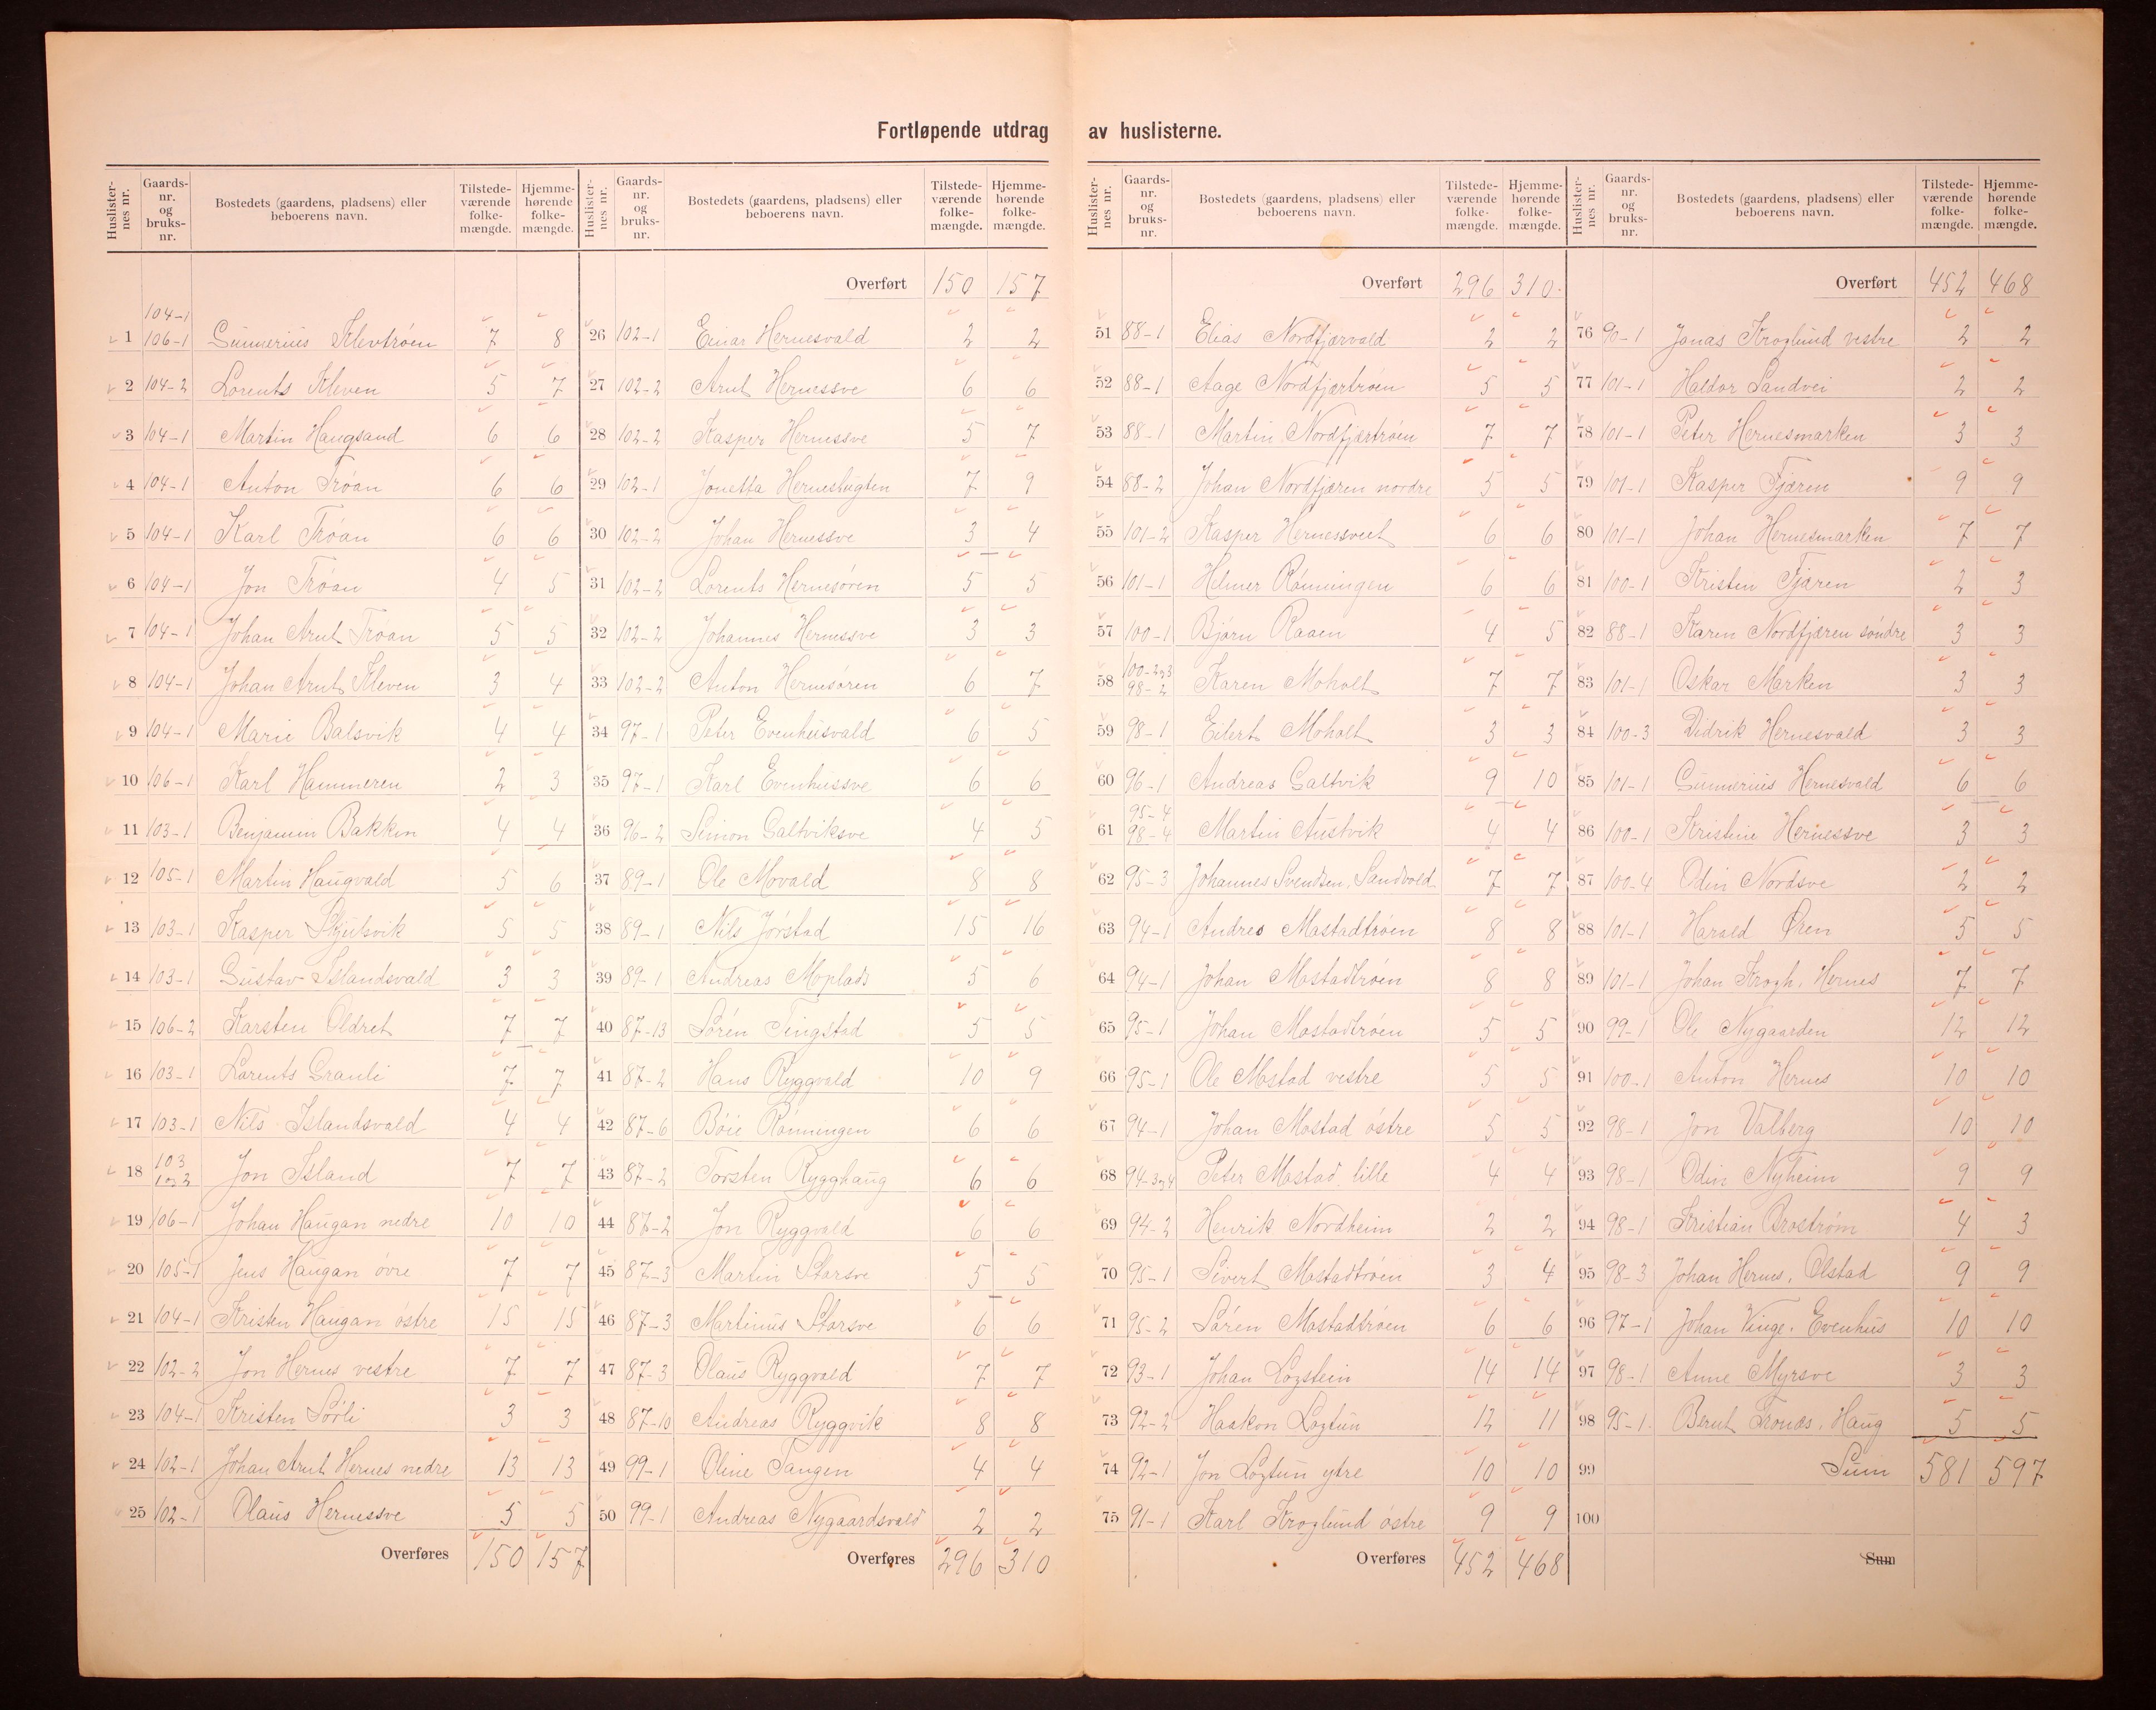 Fortløpende utdrag av huslisterne.
Huslister-nes nr. Gaards-nr. og bruks-nr. Bostedets (gaardens, pladsens) eller beboerens navn. Tilstede-værende folke-mængde. Hjemme-hørende folke-mængde.
104-1
1 106-1 Gunnerius Klevtrøen 7 8
2 104-2 Lorents Kleven 5 7
3 104-1 Martin Haugsand 6 6
4 104-1 Anton Trøan 6 6
5 104-1 Karl Trøan 6 6
6 104-1 Jon Trøan 4 5
7 104-1 Johan Arnt Trøan 5 5
8 104-1 Johan Arnt Kleven 3 4
9 104-1 Marie Balsvik 4 4
10 106-1 Karl Hammeren 2 3
11 103-1 Benjamin Bakken 4 4
12 105-1 Martin Haugvald 5 6
13 103-1 Kasper Skjulsvik 5 5
14 103-1 Gustav Islandsvald 3 3
15 106-2 Karsten Oldret 7 7
16 103-1 Lorents Granli 7 7
17 103-1 Nils Islandsvald 4 4
18 103 1og2 Jon Island 7 7
19 106-1 Johan Haugan nedre 10 10
20 105-1 Jens Haugan øvre 7 7
21 104-1 Kristen Haugan østre 15 15
22 102-2 Jon Hernes vestre 7 7
23 104-1 Kristen Sørli 3 3
24 102-1 Johan Arnt Hernes nedre 13 13
25 102-1 Olaus Hernessve 5 5
Overføres 150 157
Huslister-nes nr. Gaards-nr. og bruks-nr. Bostedets (gaardens, pladsens) eller beboerens navn. Tilstede-værende folke-mængde. Hjemme-hørende folke-mængde.
Overført 150 157
26 102-1 Einar Hernesvald 2 2
27 102-2 Arnt Hernessve 6 6
28 102-2 Kasper Hernessve 5 7
29 102-1 Jonetta Herneshugten 7 9
30 102-2 Johan Hernessve 3 4
31 102-2 Lorents Hernesøren 5 5
32 102-2 Johannes Hernessve 3 3
33 102-2 Anton Hernesøren 6 7
34 97-1 Peter Evenhusvald 6 5
35 97-1 Karl Evenhussve 6 6
36 96-2 Simon Galtviksve 4 5
37 89-1 Ole Movald 8 8
38 89-1 Nils Jørstad 15 16
39 89-1 Andreas Moplads 5 6
40 87-13 Søren Tingstad 5 5
41 87-2 Hans Ryggvald 10 9
42 87-6 Bøie Rønningen 6 6
43 87-2 Torsten Rygghaug 6 6
44 87-2 Jon Ryggvald 6 6
45 87-3 Martin Storsve 5 5
46 87-3 Martinus Storsve 6 6
47 87-3 Olaus Ryggvald 7 7
48 87-10 Andreas Ryggvik 8 8
49 99-1 Oline Tangen 4 4
50 99-1 Andreas Nygaardsvald 2 2
Overføres 296 310
Huslister-nes nr. Gaards-nr. og bruks-nr. Bostedets (gaardens, pladsens) eller beboerens navn. Tilstede-værende folke-mængde. Hjemme-hørende folke-mængde.
Overført 296 310
51 88-1 Elias Nordfjærvald 2 2
52 88-1 Aage Nordfjærtrøen 5 5
53 88-1 Martin Nordfjærtrøen 7 7
54 88-2 Johan Nordfjæren nordre 5 5
55 101-2 Kasper Hernessveet 6 6
56 101-1 Helmer Rønningen 6 6
57 100-1 Bjørn Raaen 4 5
58 100-2og3 98-2 Karen Moholt 7 7
59 98-1 Eilert Moholt 3 3
60 96-1 Andreas Galtvik 9 10
61 95-4 98-4 Martin Austvik 4 4
62 95-3 Johannes Svendsen, Sandvold 7 7
63 94-1 Andrea Mostadtrøen 8 8
64 94-1 Johan Mostadtrøen 8 8
65 95-1 Johan Mostadtrøen 5 5
66 95-1 Ole Mostad vestre 5 5
67 94-1 Johan Mostad østre 5 5
68 94-3og4 Peter Mostad lille 4 4
69 94-2 Henrik Nordheim 2 2
70 95-1 Sivert Mostadtrøen 3 4
71 95-2 Søren Mostadtrøen 6 6
72 93-1 Johan Logstein 14 14
73 92-2 Haakon Logtun 12 11
74 92-1 Jon Logtun ytre 10 10
75 91-1 Karl Kroglund østre 9 9
Overføres 452 468
Huslister-nes nr. Gaards-nr. og bruks-nr. Bostedets (gaardens, pladsens) eller beboerens navn. Tilstede-værende folke-mængde. Hjemme-hørende folke-mængde.
Overført 452 468
76 90-1 Jonas Kroglund vestre 2 2
77 101-1 Haldor Sandvei 2 2
78 101-1 Peter Hernesmarken 3 3
79 101-1 Kasper Fjæren 9 9
80 101-1 Johan Hernesmarken 7 7
81 100-1 Kristen Fjæren 2 3
82 88-1 Karen Nordfjæren søndre 3 3
83 101-1 Oskar Marken 3 3
84 100-3 Didrik Hernesvald 3 3
85 101-1 Gunnerius Hernesvald 6 6
86 100-1 Kristine Hernessve 3 3
87 100-4 Odin Nordsve 2 2
88 101-1 Harald Øren 5 5
89 101-1 Johan Krogh, Hernes 7 7
90 99-1 Ole Nygaarden 12 12
91 100-1 Anton Hernes 10 10
92 98-1 Jon Valberg 10 10
93 98-1 Odin Nyheim 9 9
94 98-1 Kristian Brostrøm 4 3
95 98-3 Johan Hernes, Olstad 9 9
96 97-1 Johan Vinge, Evenhus 10 10
97 98-1 Anne Myrsve 3 3
98 95-1 Bernt Tronæs, Haug 5 5
99 Sum 581 597
100
Sum